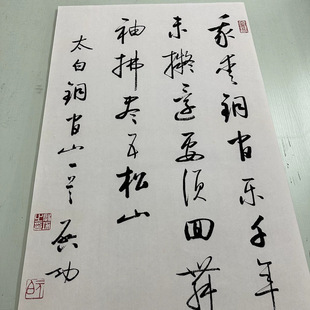 我爱铜官乐千年
未拟还要须回舞
袖拂尽五松山
太白铜官山一首 启功